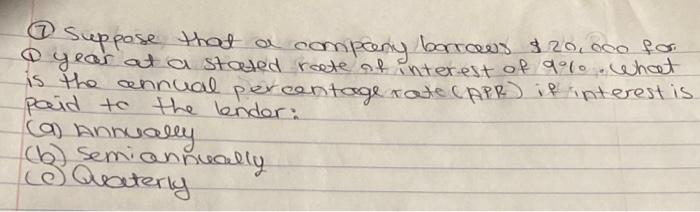 ⑦ Suppose that a company borrows $20,000 for
① year at a stated rate of interest of 9%. What
is the annual percentage rate (APR) if interest is
paid to the lendor:
(a) Annually
(b) Semiannually
(c) Quaterly